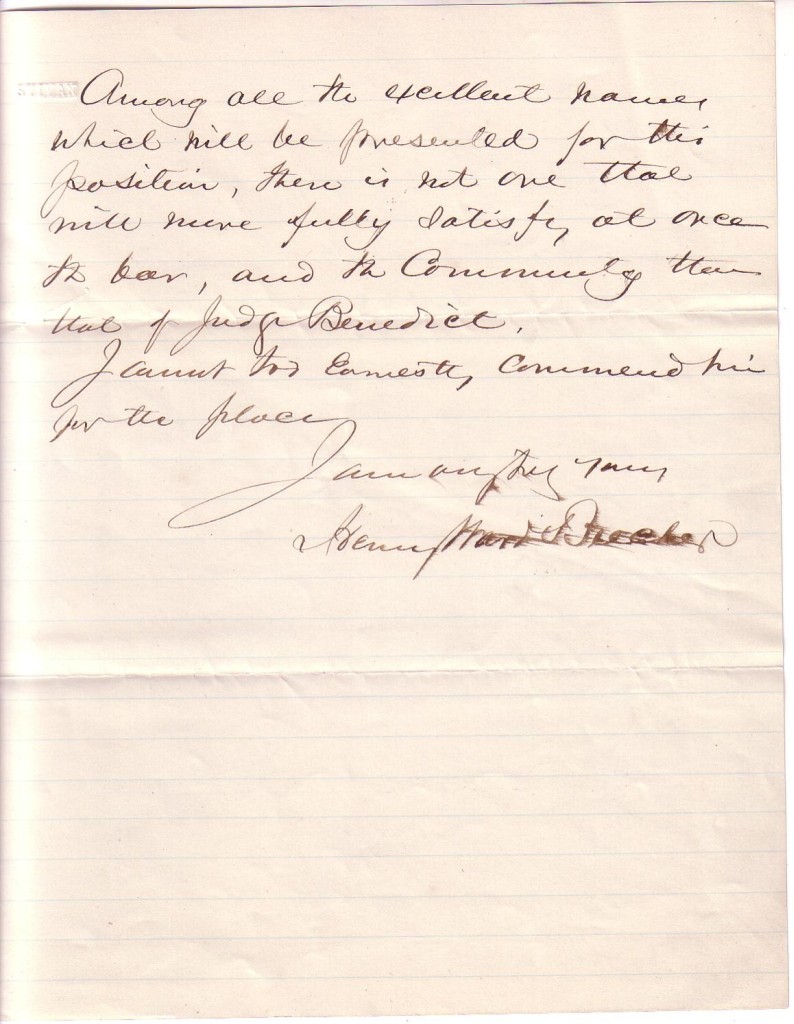 Among all the excellent names
which will be presented for this
position, there is not one that
will more fully satisfy, at once
the bar, and the Community than
that of Judge Benedict.
I cannot too Earnestly commend him
for the place
I am very truly yours
Henry Ward Beecher